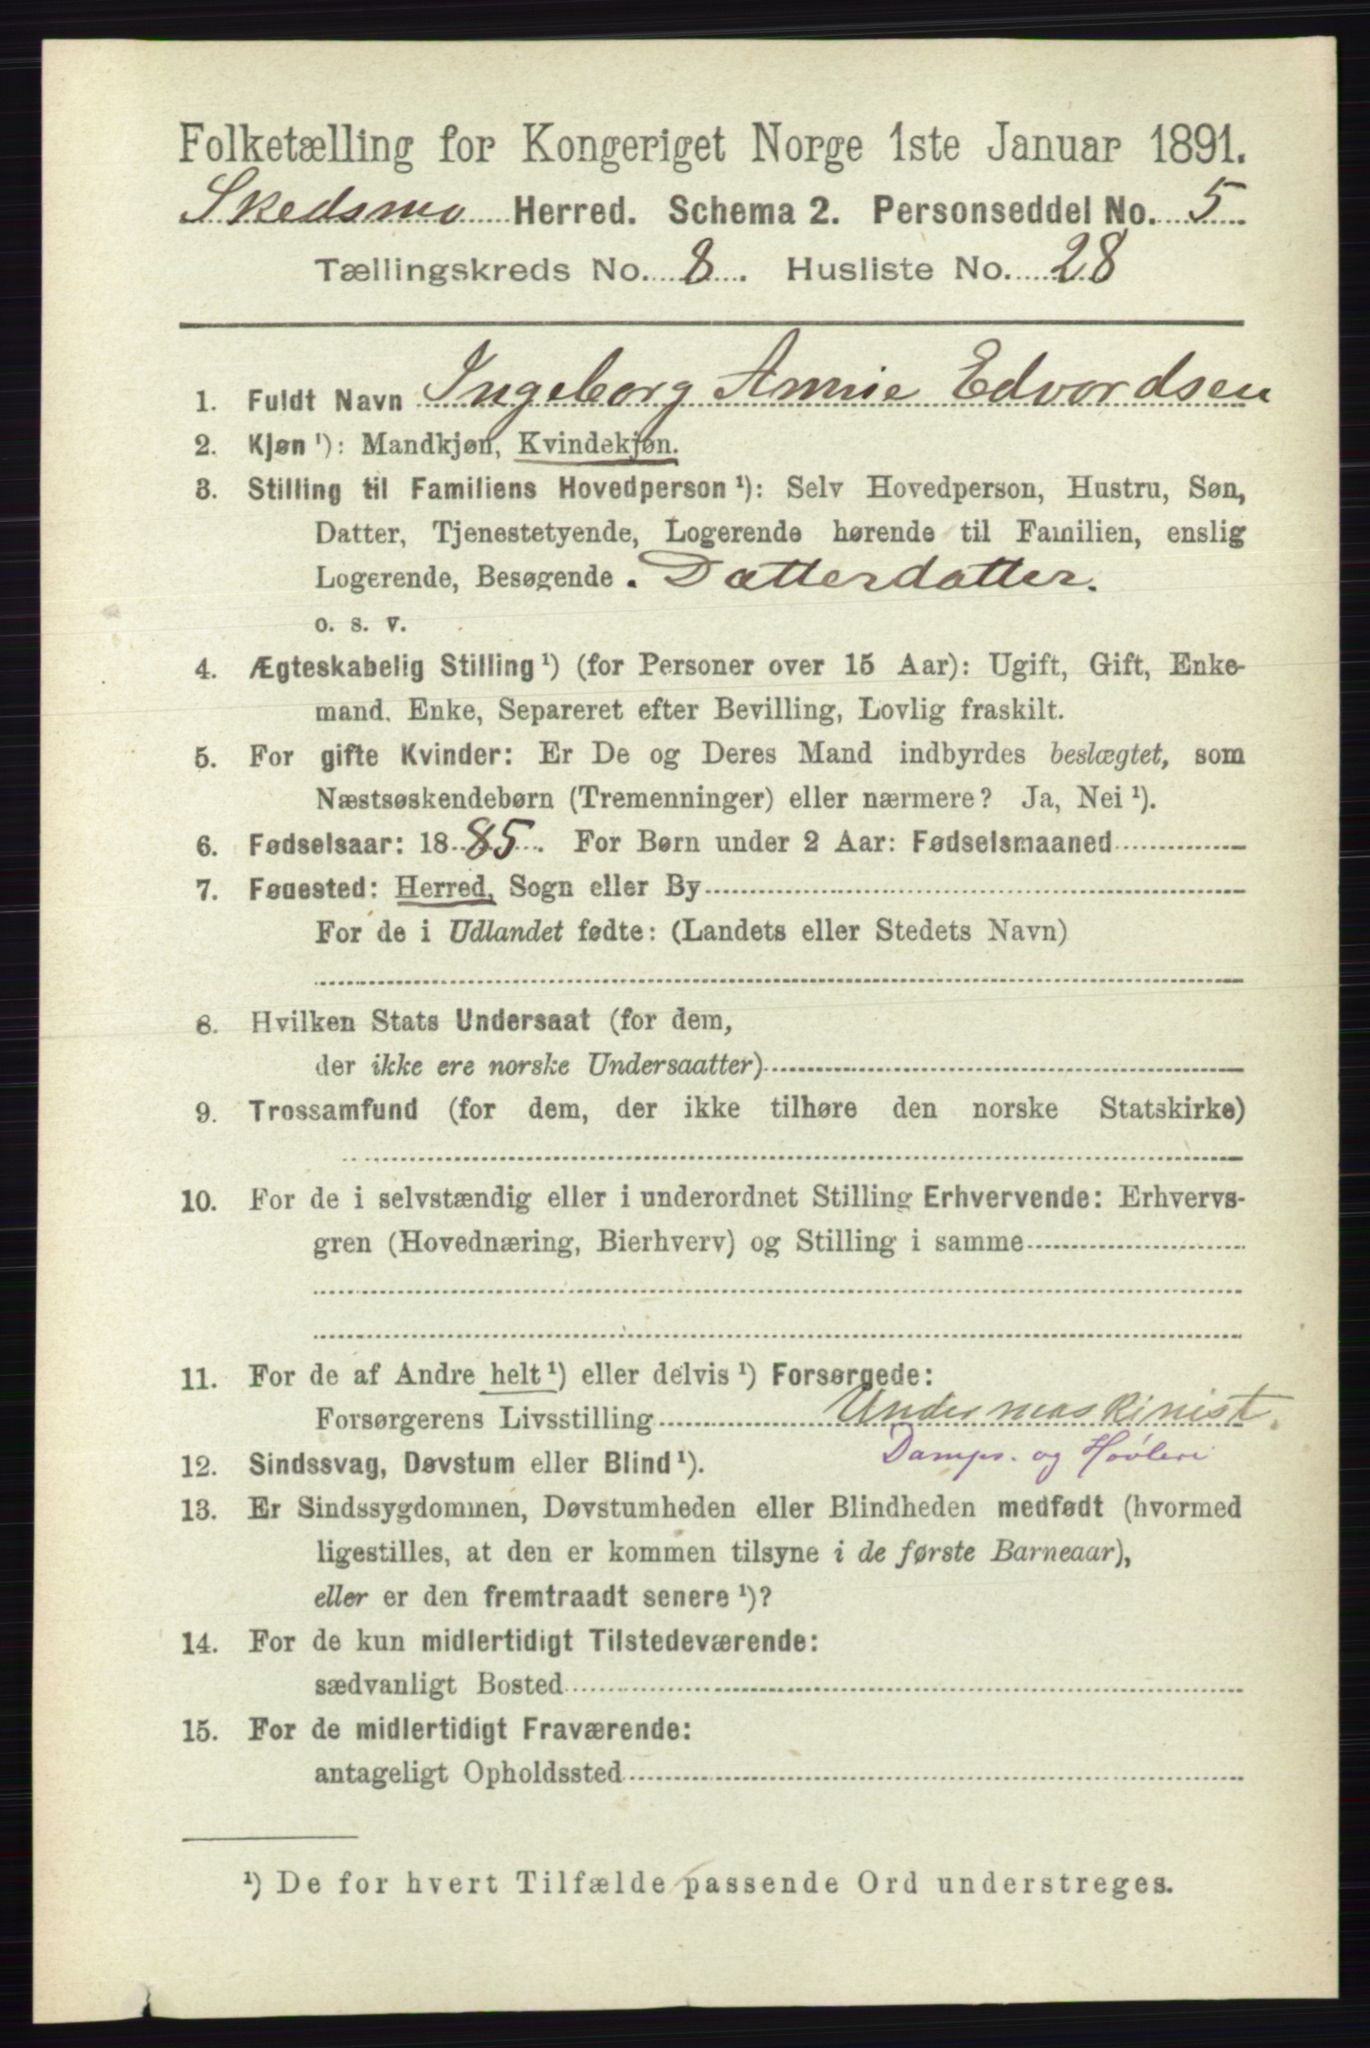 Folketælling for Kongeriget Norge 1ste Januar 1891.
Skedsmo Herred. Schema 2. Personseddel No. 5
Tællingskreds No. 8. Husliste No. 28
1. Fuldt Navn Ingeborg Annie Edvardsen
2. Kjøn ¹): Mandkjøn, Kvindekjøn.
3. Stilling til Familiens Hovedperson ¹): Selv Hovedperson, Hustru, Søn,
Datter, Tjenestetyende, Logerende hørende til Familien, enslig
Logerende, Besøgende . Datterdatter.
o. s. v.
4. Ægteskabelig Stilling ¹) (for Personer over 15 Aar): Ugift, Gift, Enke-
mand, Enke, Separeret efter Bevilling, Lovlig fraskilt.
5. For gifte Kvinder: Er De og Deres Mand indbyrdes beslægtet, som
Næstsøskendebørn (Tremenninger) eller nærmere? Ja, Nei ¹).
6. Fødselsaar: 1885. For Børn under 2 Aar: Fødselsmaaned
7. Fødested: Herred, Sogn eller By
For de i Udlandet fødte: (Landets eller Stedets Navn)
8. Hvilken Stats Undersaat (for dem,
der ikke ere norske Undersaatter)
9. Trossamfund (for dem, der ikke tilhøre den norske Statskirke)
10. For de i selvstændig eller i underordnet Stilling Erhvervende: Erhvervs-
gren (Hovednæring, Bierhverv) og Stilling i samme
11. For de af Andre helt ¹) eller delvis ¹) Forsørgede:
Forsørgerens Livsstilling Undermaskinist.
Damps. og Høvleri
12. Sindssvag, Døvstum eller Blind ¹).
13. Er Sindssygdommen, Døvstumheden eller Blindheden medfødt (hvormed
ligestilles, at den er kommen tilsyne i de første Barneaar),
eller er den fremtraadt senere ¹)?
14. For de kun midlertidigt Tilstedeværende:
sædvanligt Bosted
15. For de midlertidigt Fraværende:
antageligt Opholdssted
¹) De for hvert Tilfælde passende Ord understreges.